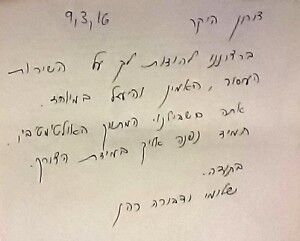 דורון היקר 9,3,16
ברצוננו להודות לך על השירות
המסור, האמין והיעיל במיוחד.
אתה בשבילנו. המתווך האולטימטיבי.
תמיד נפנה אליך במידת הצורך.
בתודה.
שלומי ודבורה כהן